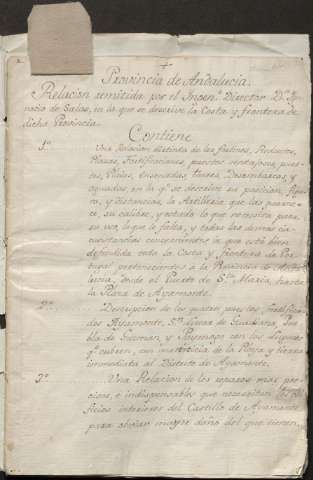 Provincia de Andalucia.
Relacion remitida por el Ingen.o Director D.n Ig-
nacio de Salas, en la que se describe la Costa y frontera de
dicha Provincia.
Contiene
1o. Una Relacion distinta de los fortines, Reductos,
Plazas, Fortificaciones, puestos ventajosos, puer-
tos, Playas, Ensenadas, thores, Desembarcos, y
aguadas, en la q.e se describe su posicion, figu-
ra, y distancias, la Artilleria que las guarne-
ce, su calibre, y estado lo que necesita para
su uso, lo que le falta, y todas las demas cir-
cunstancias concernientes a que esté bien
defendida toda la Costa y frontera de Por-
tugal pertenecientes a la Provincia de Anda-
lucia, desde el Puerto de S.ta Maria, hasta
la Plaza de Ayamonte.
2o. Descripcion de los quatro puestos fortifica-
dos Ayamonte, S.n Lucar de Guadiana, Pue-
bla de Guzman, y Paymogo con los Lugares
q.e cubren, con noticia de la Playa y tierra
inmediata al Distrito de Ayamonte.
3o. Una Relacion de los reparos mas pre-
cisos, e indispensables que necesitan los edi-
ficios interiores del Castillo de Ayamonte
para obviar mayor daño del que tienen.